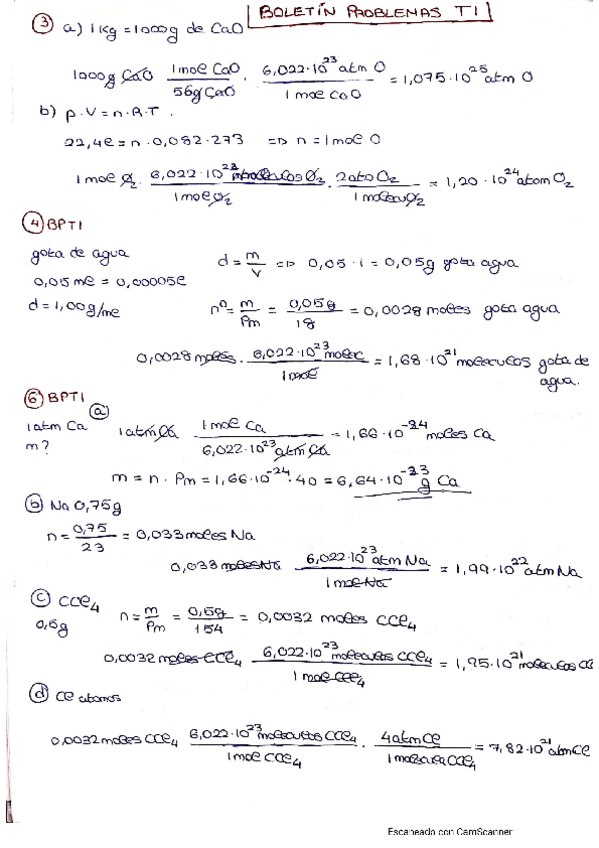 BOLETÍN PROBLEMAS T1
③ a) 1Kg = 1000g de CaO
1000g CaO · 1mol CaO / 56g CaO · 6,022·10²³ atm O / 1mol CaO = 1,075·10²⁵ atm O
b) p·V = n·R·T.
22,4l = n·0,082·273 => n = 1mol O
1mol O₂ · 6,022·10²³ moleculas O₂ / 1mol O₂ · 2ato O₂ / 1molecu O₂ = 1,20·10²⁴ atom O₂
④ BPT1
gota de agua
0,05ml = 0,00005l
d = 1,00g/ml
d = m/V => 0,05·1 = 0,05g gota agua
nº = m/Pm = 0,05g/18 = 0,0028 moles gota agua
0,0028 moles · 6,022·10²³ molec / 1mol = 1,68·10²¹ moleculas gota de agua.
⑥ BPT1
ⓐ
1atm Ca
m?
1atm Ca 1mol Ca / 6,022·10²³ atm Ca = 1,66·10⁻²⁴ moles Ca
m = n·Pm = 1,66·10⁻²⁴·40 = 6,64·10⁻²³ g Ca
ⓑ Na 0,75g
n = 0,75/23 = 0,033 moles Na
0,033 moles Na 6,022·10²³ atm Na / 1mol Na = 1,99·10²² atm Na
ⓒ CCl₄
0,5g
n = m/Pm = 0,5g/154 = 0,0032 moles CCl₄
0,0032 moles CCl₄ 6,022·10²³ moleculas CCl₄ / 1mol CCl₄ = 1,95·10²¹ moleculas CC
ⓓ Cl atomos
0,0032 moles CCl₄ 6,022·10²³ moleculas CCl₄ / 1mol CCl₄ · 4atm Cl / 1molecula CCl₄ = 7,82·10²¹ atm Cl
Escaneado con CamScanner